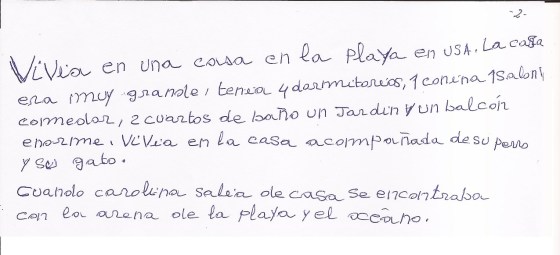 -2-
Vivia en una casa en la playa en USA. La casa
era muy grande, tenia 4 dormitorios, 1 concina 1 salon,
comedor, 2 cuartos de baño un Jardin y un balcón
enorme. Vivia en la casa acompañada de su perro
y su gato.
Cuando carolina salia de casa se encontraba
con la arena de la playa y el oceâno.